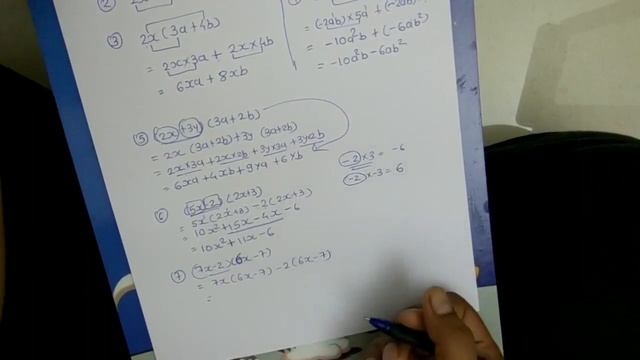 ②
③ 2x (3a+4b)
= 2x×3a + 2x×4b
= 6xa + 8xb
= (-2ab)×5a + (-2ab)
= -10a²b + (-6ab²)
= -10a²b - 6ab²
⑤ (2x+3y) (3a+2b)
= 2x (3a+2b) + 3y (3a+2b)
= 2x×3a + 2x×2b + 3y×3a + 3y×2b
= 6xa + 4xb + 9ya + 6yb
-2×3 = -6
-2×-3 = 6
⑥ (5x-2) (2x+3)
= 5x (2x+3) - 2 (2x+3)
= 10x² + 15x - 4x - 6
= 10x² + 11x - 6
⑦ (7x-2) (6x-7)
= 7x (6x-7) - 2 (6x-7)
=